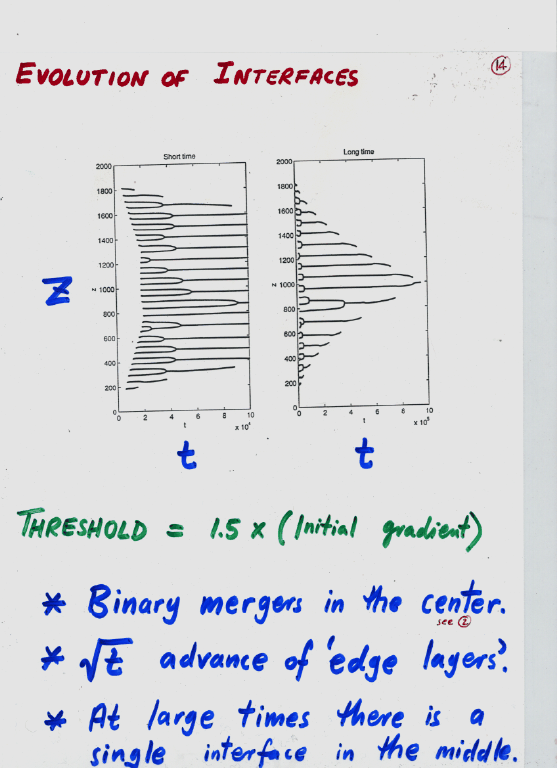 EVOLUTION OF INTERFACES
14
Short time
Long time
2000
1800
1600
1400
1200
z 1000
800
600
400
200
0
0 2 4 6 8 10
t
2000
1800
1600
1400
1200
z 1000
800
600
400
200
0
0 2 4 6 8 10
t
z
t
t
THRESHOLD = 1.5 x (Initial gradient)
* Binary mergers in the center.
see 2
* √t advance of 'edge layers'.
* At large times there is a
single interface in the middle.